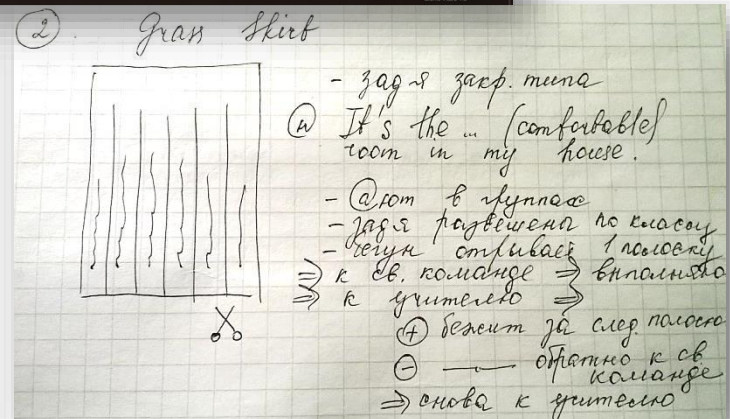 ② . Grass Skirt
- зад-я закр. типа
Ⓗ It's the ... (comfortable)
room in my house.
- ⓐют в группах
- зад-я развешены по классу
- бегун отрывает 1 полоску
⇒ к св. команде ⇒ выполняю
⇒ к учителю ⇒
⊕ бежит за след. полоско
⊖ —— обратно к св.
команде
⇒ снова к учителю